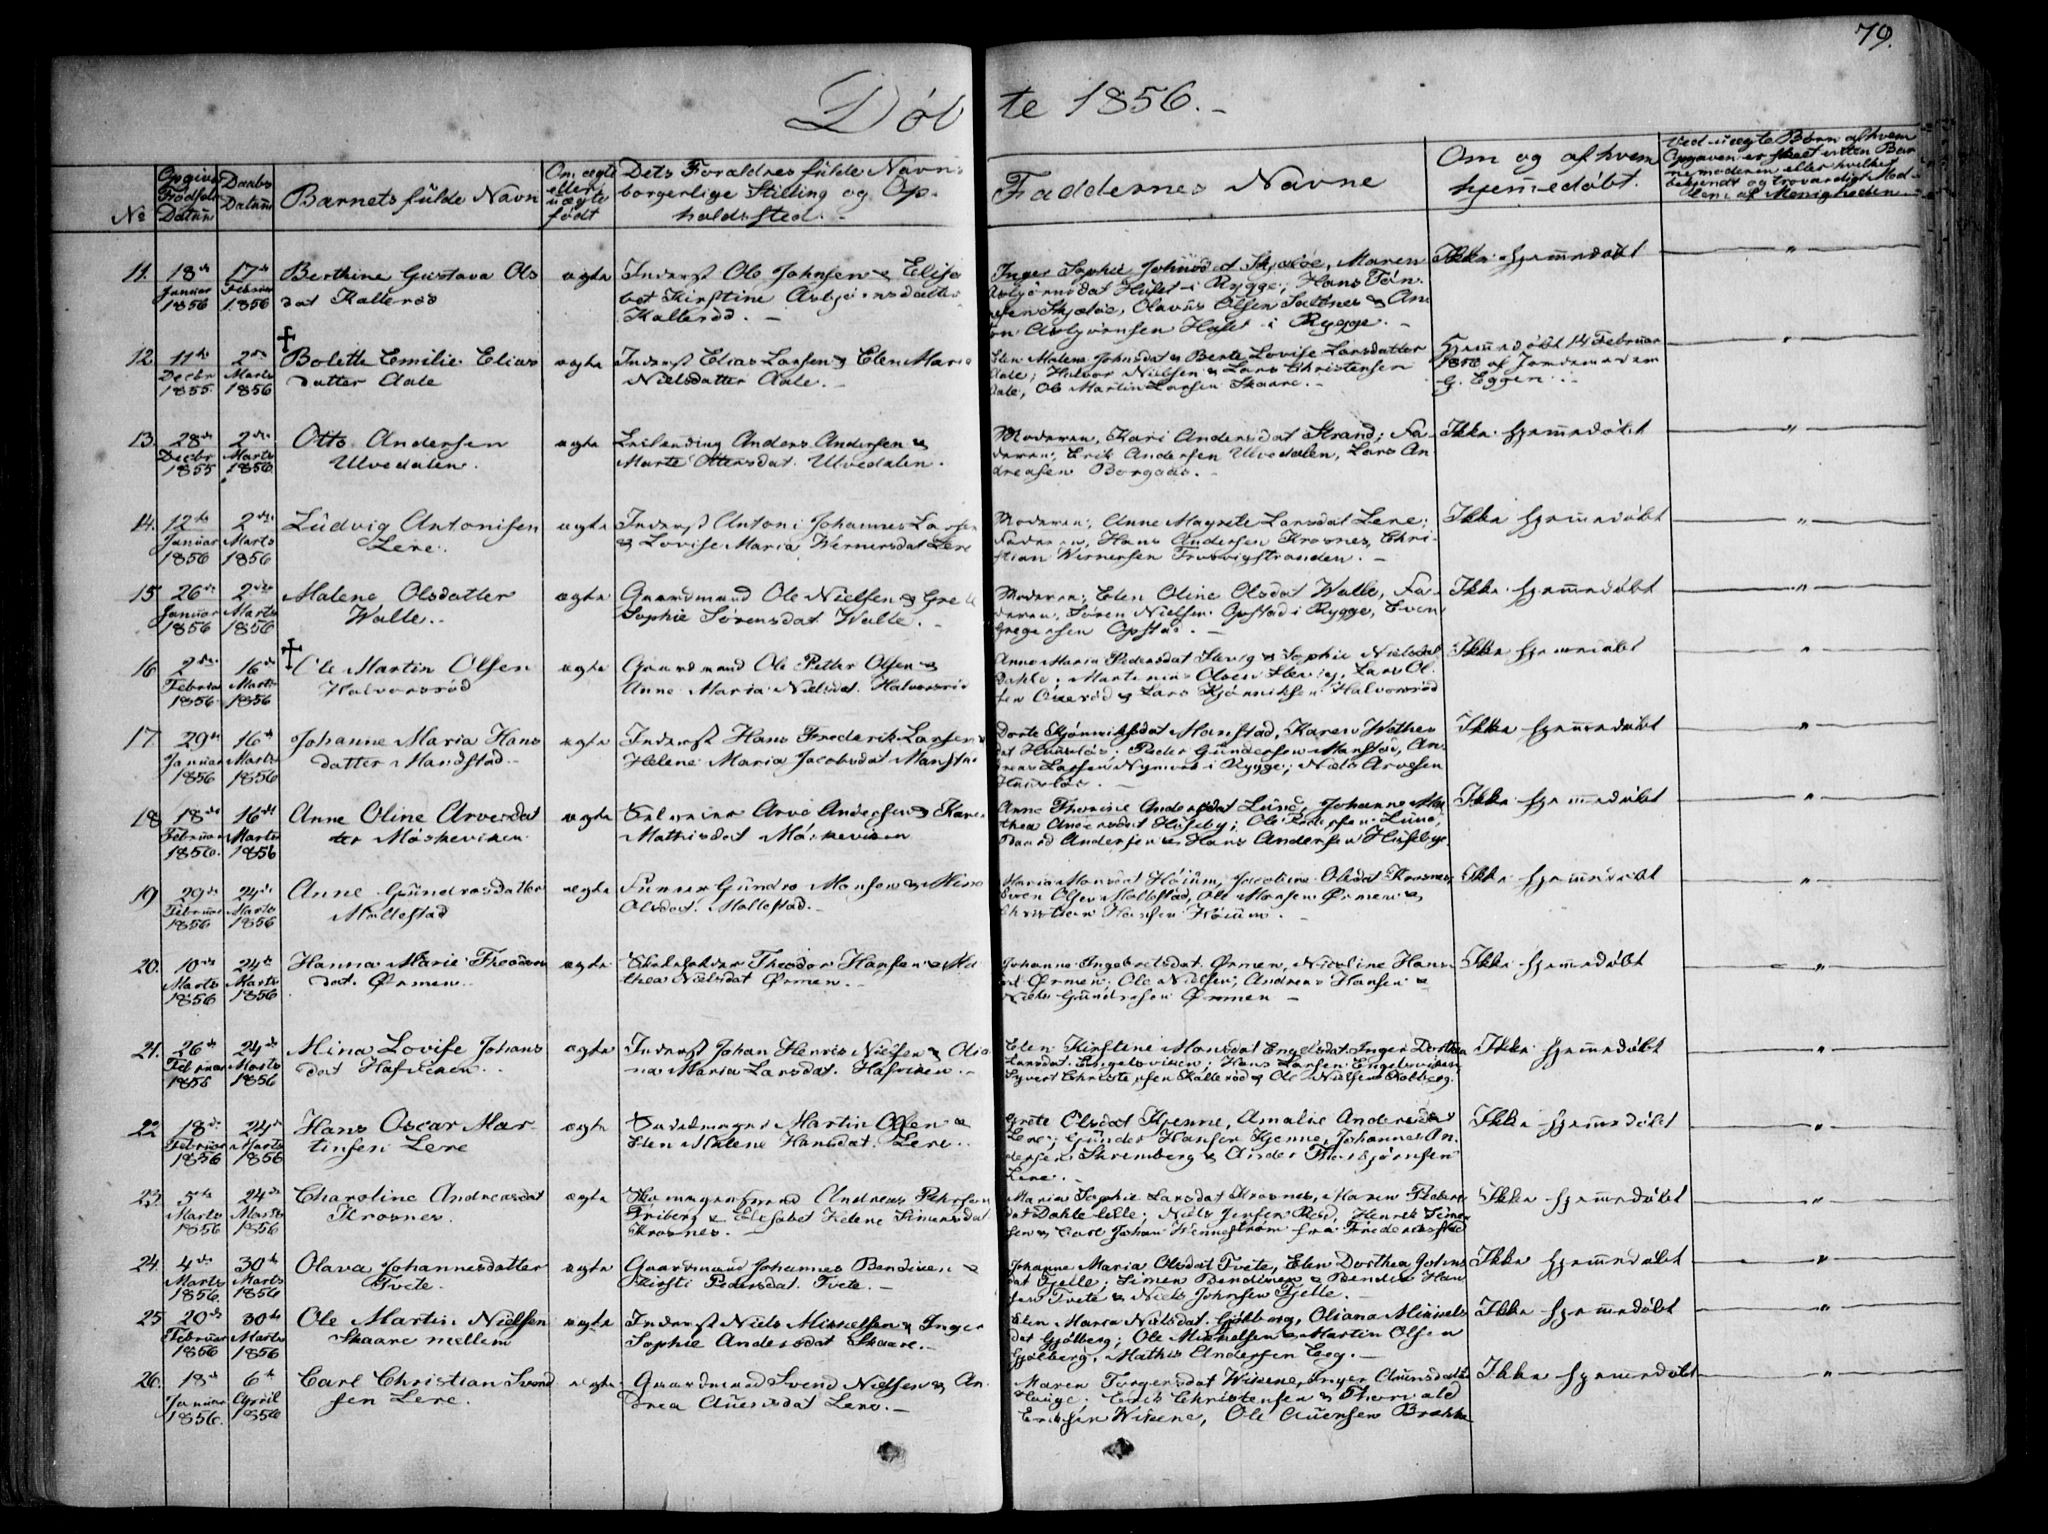 79.
Døbte 1856.
No
Opgivet Fødsels Datum
Daabs Datum
Barnets fulde Navn
Om ægte eller uægte født
Dets Forældres fulde Navne borgerlige Stilling og Opholdssted.
Faddernes Navne
Om og af hvem hjemmedøbt.
Ved uægte Børn af hvem Opgaven er skeet uden Barnemoderen eller hvilket bekjendt og troværdigt Medlem af Menigheden
11. 18de Januar 1856 17de Februar 1856
Berthine Gustava Olsdat Kallerød
ægte
Inderst Ole Johnsen & Elisabet Kirstine Asbjørnsdatter Kallerød. –
Inger Sophie Johnsdat Skjeløe, Maren
Asbjørnsdat Huset i Rygge; Hans Tønsen Skjeløe, Olavus Olsen Saltnes & Asbjørnsen Huset i Rygge. –
Ikke hjemmedøbt
12. 11te Decbr 1855. 2den Marts 1856
Bolette Emilie Elias
datter Aale
ægte
Inderst Elias Larsen & Elen Marie
Nielsdatter Aale. –
Elen Malene Johnsdat & Berte Lovise Larsdatter
Aale; Halvor Nielsen & Lars Christensen
Aale, Ole Martin Larsen Skaare. –
Hjemmedøbt 14 Februar
1856 af Jordemoderen
G. Eggen. –
13. 28de Decbr 1855 2den Marts 1856
Otto Andersen
Ulvedalen.
ægte
Leilending Anders Andersen &
Marte Ottersdat. Ulvedalen.
Moderen, Kari Andersdat Strand; Fa-
deren; Erik Andersen Ulvedalen, Lars An
dreasen Borgaas. –
Ikke hjemmedøbt
14. 12te Januar 1856 2den Marts 1856
Ludvig Antonisen
Lere.
ægte
Inderst Antoni Johannes Larsen
& Lovise Maria Wernersdat Lere
Moderen; Anne Magrete Larsdat Lere;
Faderen, Hans Andersen Krosnes, Chri-
stian Wernersen Trosvigstranden. –
Ikke hjemmedøbt
15 26de Januar 1856 2den Marts 1856
Malene Olsdatter
Walle..
ægte
Gaardmand Ole Nielsen & Grete
Sophie Sørensdat Walle. –
Moderen; Elen Oline Olsdat Walle, Fa-
deren, Søren Nielsen Opstad i Rygge, Even
Gregersen Opstad. –
Ikke hjemmedøbt
16 2den Februar 1856. 16de Marts 1856
Ole Martin Olsen
Halvorsrød
ægte
Gaardmand Ole Petter Olsen &
Anne Maria Nielsdat. Halvorsrød
Anne Maria Pedersdat & Sophie Nielsdat
Dahle; Lars Ol-
sen & Lars Kjønniksen Halvorsrød
Ikke hjemmedøbt
17. 29de Januar 1856 16de Marts 1856
Johanne Maria Hans
datter Mandstad.
ægte
Inderst Hans Frederik Larsen &
Helene Maria Jacobsdat Manstad
Dorte Kjønniksdat Manstad, Karen
Peder Gundersen Manstad, An
dreas Larsen i Rygge; Niels Arvesen
Ikke hjemmedøbt
18 18de Februar 1856. 16de Marts 1856
Anne Oline Arvesdat
ter Møskeviken
ægte
Selveier Arve Andersen & Karen
Mathisdat Møskeviken
Anne Thorine Andersdat Lund, Johanne Ma
thea Andersdat Huseby; Ole Pedersen Lund,
Andersen & Hans Andersen Huseby
Ikke hjemmedøbt
19 29de Februar 1856 24de Marts 1856
Anne Gundrosdatter
Mallestad
ægte
Gundro Monsen &
Olsdat. Mallestad. –
Maria Monsdat, Olsdat Krosnes,
Olsen Mallestad, Ole Monsen Ørmen &
Christian Hansen
Ikke hjemmedøbt
20. 10de Marts 1856 24de Marts 1856
Hanna Marie Theodors
dat. Ørmen..
ægte
Theodor Hansen & Ma
thea Nielsdat Ørmen. –
Johanne Ingebretsdat. Ørmen, Nicoline Hans-
dat Ørmen; Ole Nielsen, Andreas Hansen &
Niels Gundrosen Ørmen –
Ikke hjemmedøbt
21. 26de Februar 1856 24de Marts 1856
Mina Lovise Johans
dat Hafviken.
ægte
Inderst Johan Henrik Nielsen & Olia
na Maria Larsdat. Hafviken. –
Elen Kirstine Monsdat Inger Dorthea
Larsdat. Engelsviken; Hans Larsen Engelsviken,
Syvert Christensen Kallerød & Ole Nielsen
Ikke hjemmedøbt
22 18de Februar 1856 24de Marts 1856
Hans Oscar Mar-
tinsen Lere
ægte
Martin Olsen &
Elen Malene Hansdat. Lere. .
Grete Olsdat Kjenne, Amalie Andersdat
Lere; Gunder Hansen Kjenne, Johannes An-
dersen & Anders Thorbjørnsen
Lere. –
Ikke hjemmedøbt
23. 5te Marts 1856 24de Marts 1856
Charoline Andreasdat
Krosnes.
ægte
Andreas Pehrson
Friberg & Elisabet Helene Simensdat
Krosnes. –
Maria Sophie Larsdat Krosnes, Maren
dat Dahle lille; Niels Jensen, Henrik Simen
sen & Carl Johan Wennestrøm fra Frederiksstad
Ikke hjemmedøbt
24. 4de Marts 1856. 30te Marts 1856
Olava Johannesdatter
Tvete.
ægte
Gaardmand Johannes Bendixen &
Kirsti Pedersdat. Tvete. –
Johanne Maria Olsdat Tvete, Elen Dorthea Johns
dat Fjelle; Simen Bendixen & Bendix Han
sen Tvete & Niels Johnsen Fjelle. –
Ikke hjemmedøbt
25 20de Februar 1856 30te Marts 1856
Ole Martin Nielsen
Skaare mellem
ægte
Inderst Niels Mikkelsen & Inger
Sophie Andersdat Skaare. –
Elen Maria Nielsdat. Gjølberg, Oliana Mikkels
dat Gjølberg; Ole Mikkelsen & Martin Olsen
Gjølberg, Mathis Andersen Eeg. –
Ikke hjemmedøbt
26. 18de Januar 1856. 6te April 1856
Carl Christian Svend
sen Lere.
ægte
Gaardmand Svend Nielsen & An
drea Auensdat Lere. –
Maren Torgersdat Wikene, Inger Auensdat
Hauge; Erik Christensen & Thorvald
Eriksen Wikene, Ole Auensen Brekke
Ikke hjemmedøbt